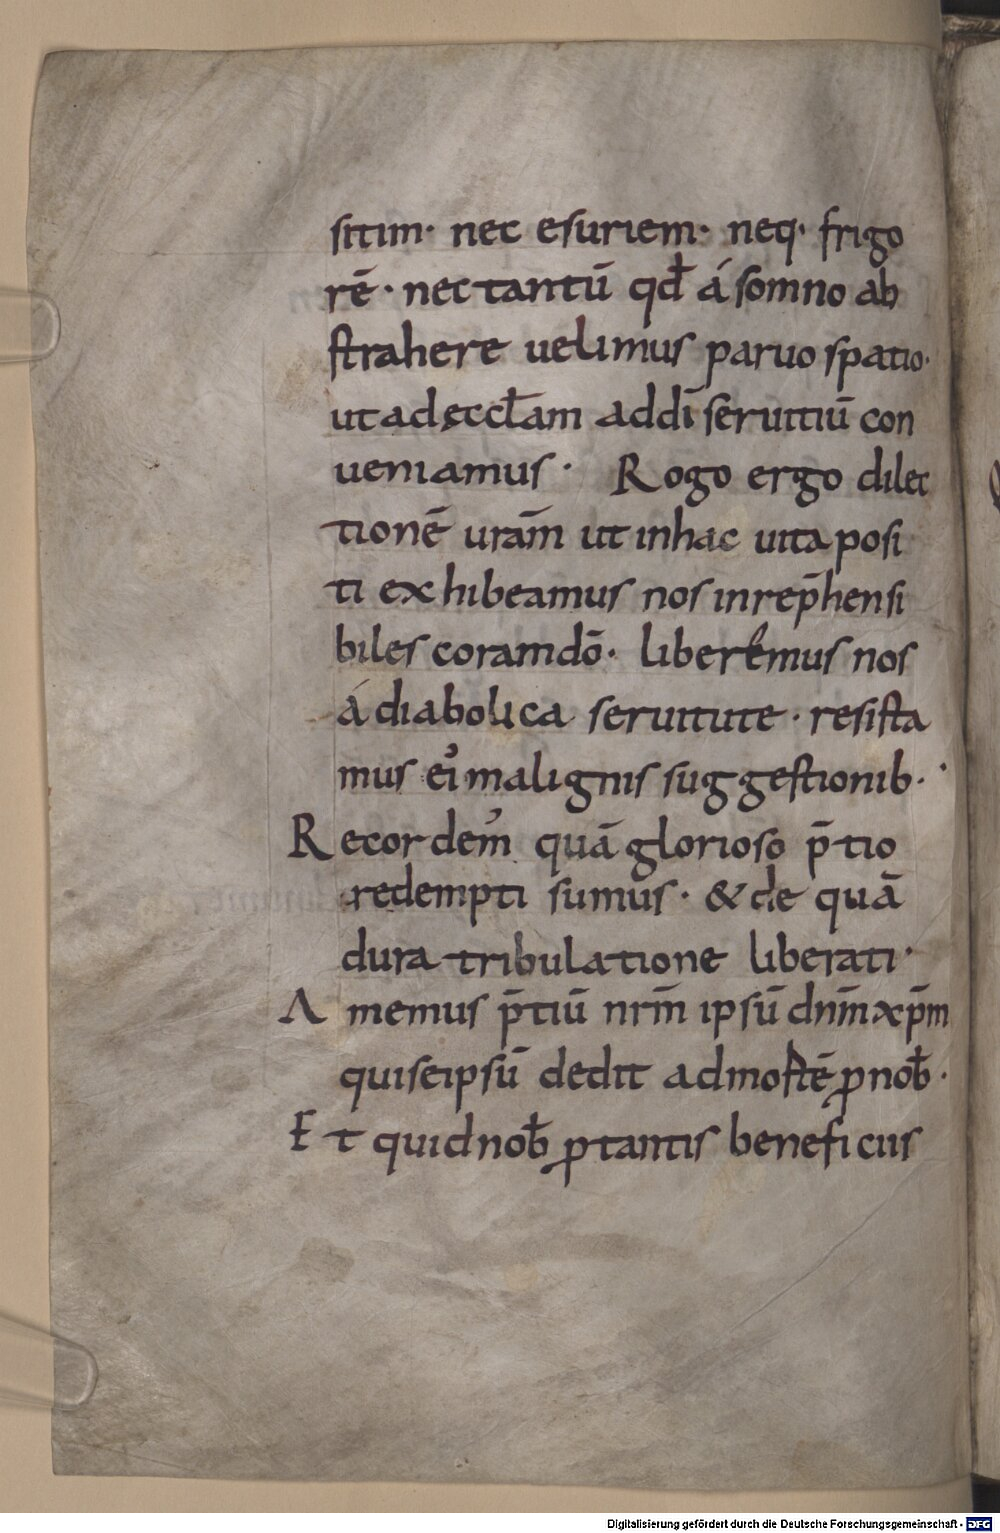 sitim· nec esuriem· neq· frigo
rē· nec tantū qđ á somno ab
strahere uelimus paruo spatio·
ut ad ęccłam ad dī seruitiū con
ueniamus· Rogo ergo dilec
tionē urām ut in hac uita posi
ti exhibeamus nos inrep̄hensi
biles coram dō· liberemus nos
á diabolica seruitute· resista
mus ei malignis suggestionib·
Recordem̃ quā glorioso p̄tio
redempti sumus· & de quā
dura tribulatione liberati·
Amemus p̄tiū nrm̄ ipsū dnm̄ xp̄m
qui seipsū dedit ad mortē ꝓ nob̄·
Et quid nob̄ ꝓ tantis beneficiis
Digitalisierung gefördert durch die Deutsche Forschungsgemeinschaft - DFG